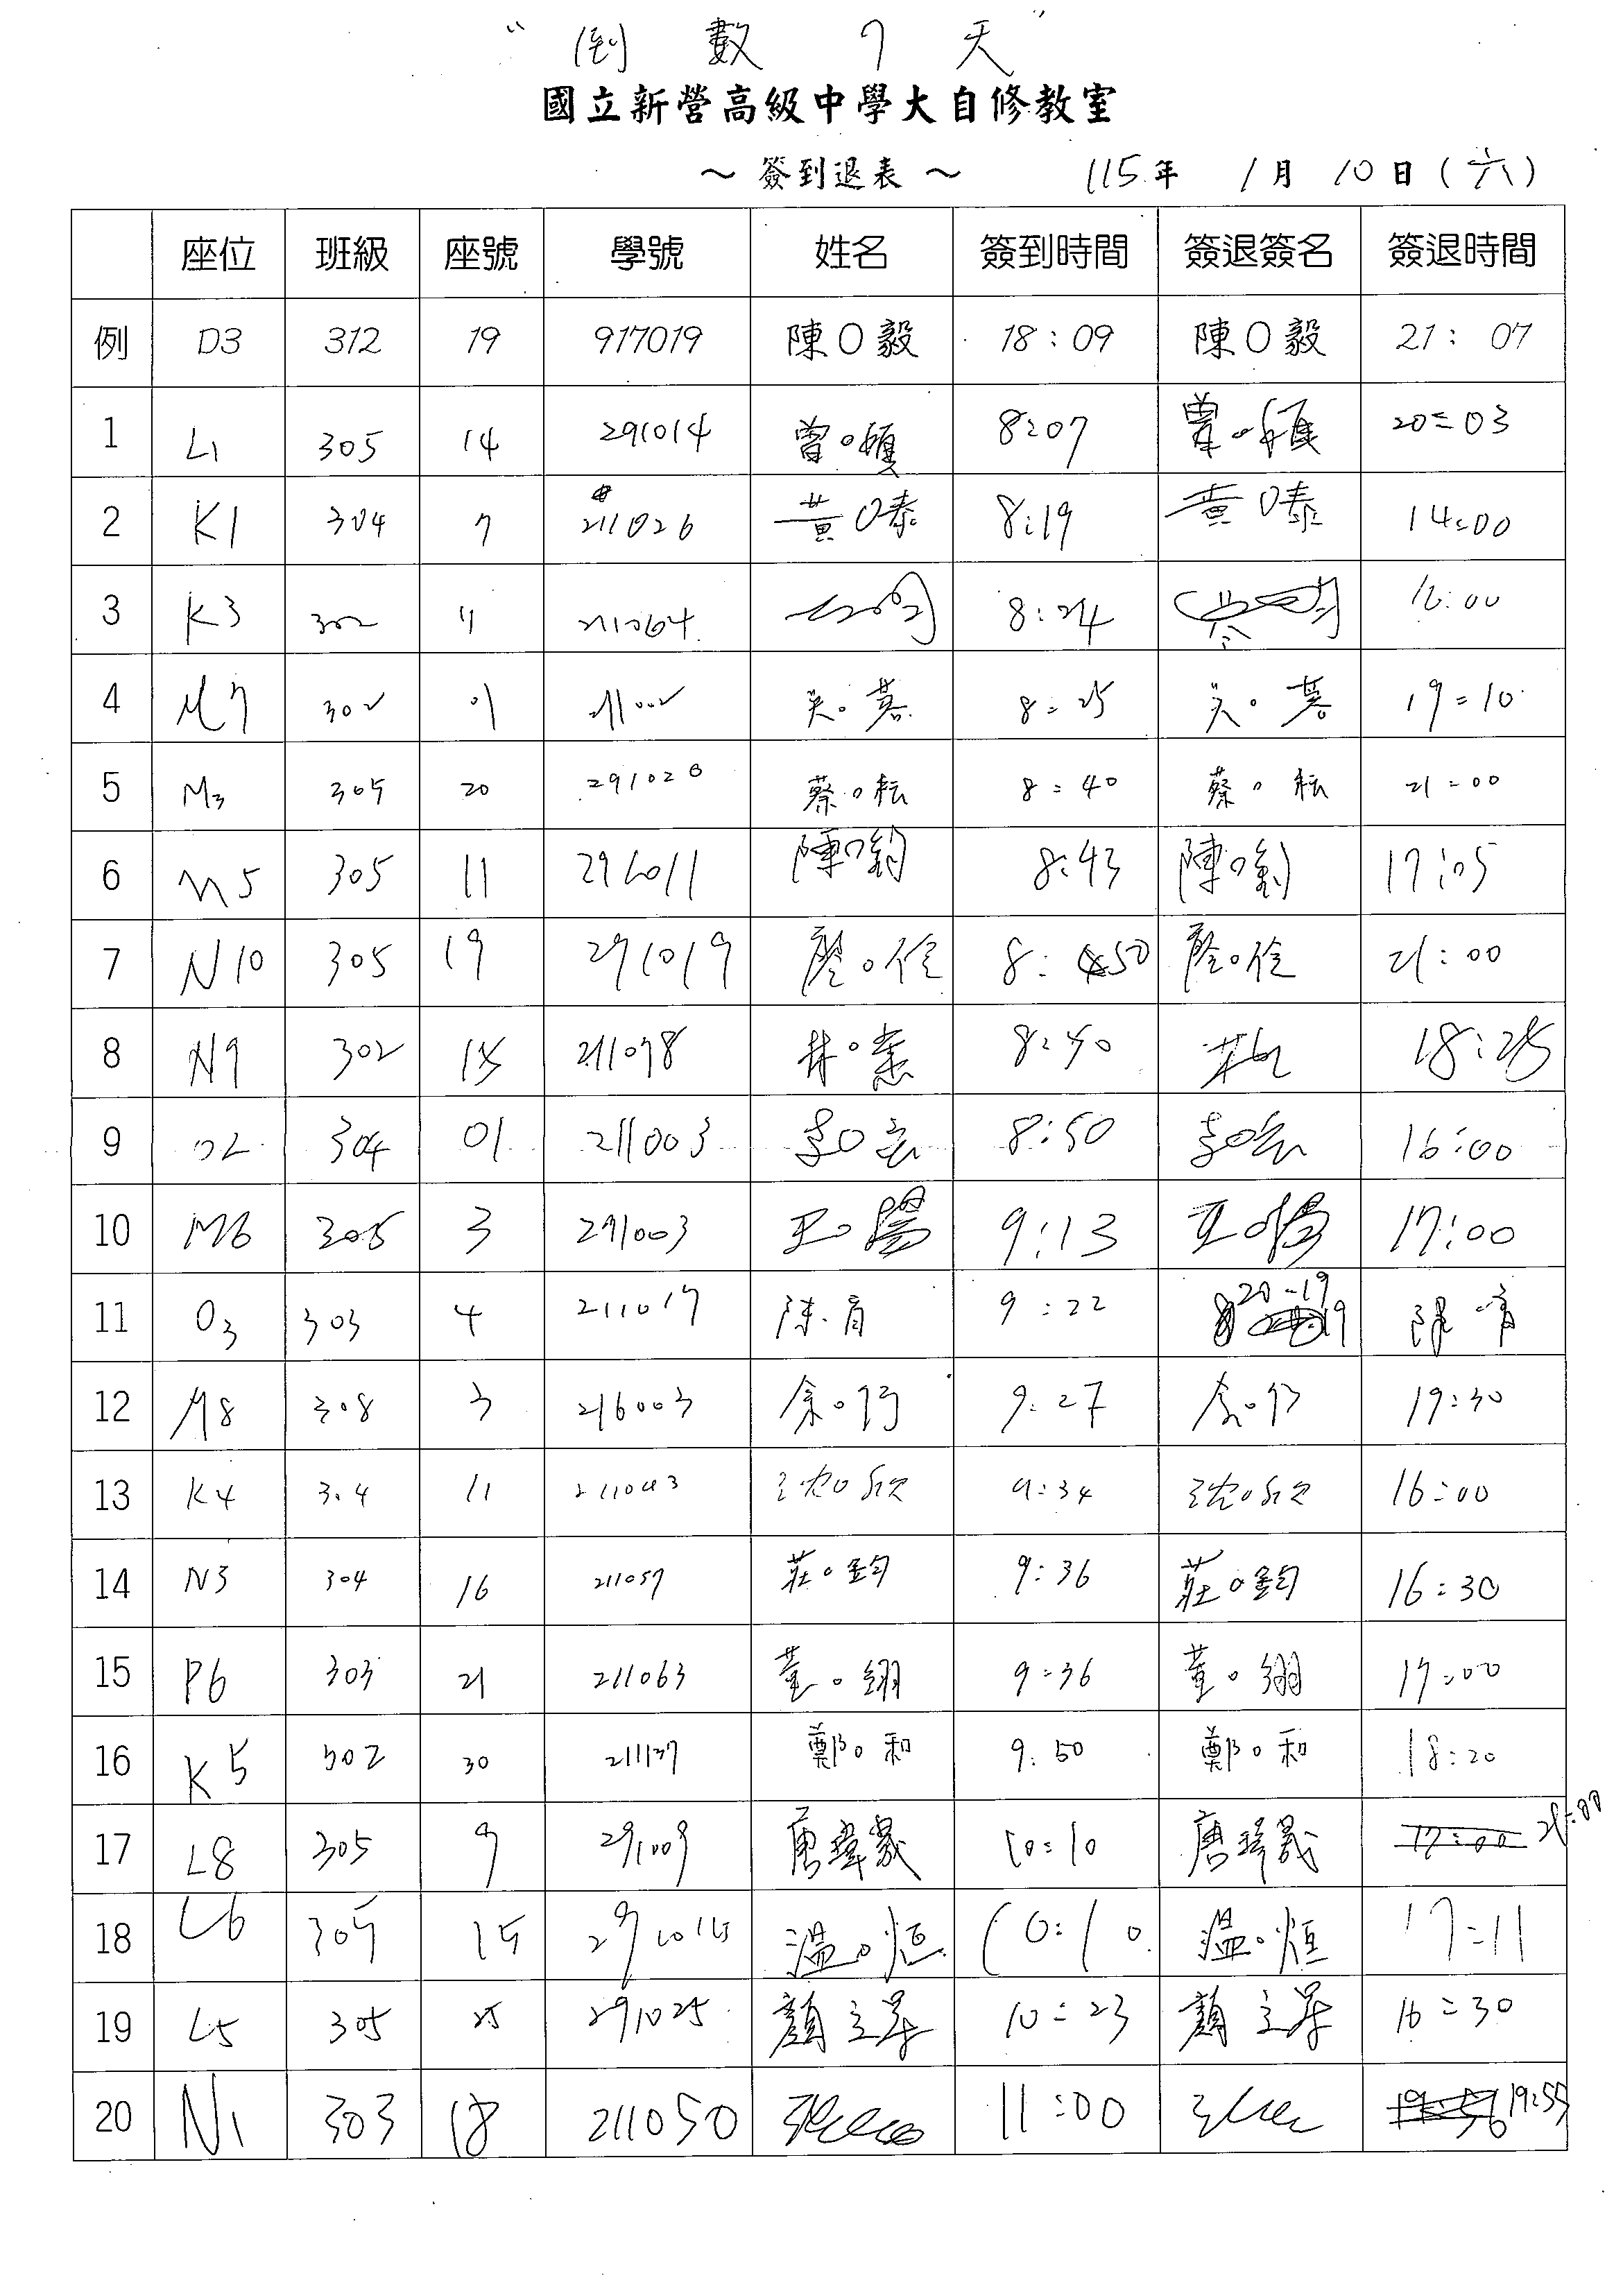 “倒數7天”
國立新營高級中學大自修教室
～ 簽到退表 ～ 115年 1月 10日（六）
座位 班級 座號 學號 姓名 簽到時間 簽退簽名 簽退時間
例 D3 312 19 917019 陳O毅 18:09 陳O毅 21:07
1 L1 305 14 291014 曾O 8:07 曾O 20:03
2 K1 304 7 211026 黃O溱 8:19 黃O溱 14:00
3 K3 302 11 211064 8:24 16:00
4 M7 302 01 211002 吳O蓁 8:25 吳O蓁 19:10
5 M3 305 20 291020 蔡O耘 8:40 蔡O耘 21:00
6 M5 305 11 291011 陳O鈞 8:43 陳O鈞 17:05
7 N10 305 19 291019 廖O佺 8:50 廖O佺 21:00
8 N9 302 15 211078 林O 8:50 林 18:25
9 O2 304 01 211003 李O宏 8:50 李O宏 16:00
10 M6 305 3 291003 王O陽 9:13 王O陽 17:00
11 O3 303 4 211017 陳O育 9:22 20:19
12 M8 308 3 216003 余O 9:27 余O 19:30
13 K4 304 11 211043 沈O欣 9:34 沈O欣 16:00
14 N3 304 16 211057 莊O鈞 9:36 莊O鈞 16:30
15 P6 303 21 211063 董O翊 9:36 董O翊 17:00
16 K5 302 30 211137 鄭O和 9:50 鄭O和 18:20
17 L8 305 9 291009 唐瑋晟 10:10 唐瑋晟 17:00 21:00
18 L6 305 15 291015 溫O恒 10:10 溫O恒 17:11
19 L5 305 25 291025 顏立昇 10:23 顏立昇 16:30
20 N1 303 18 211050 11:00 19:55